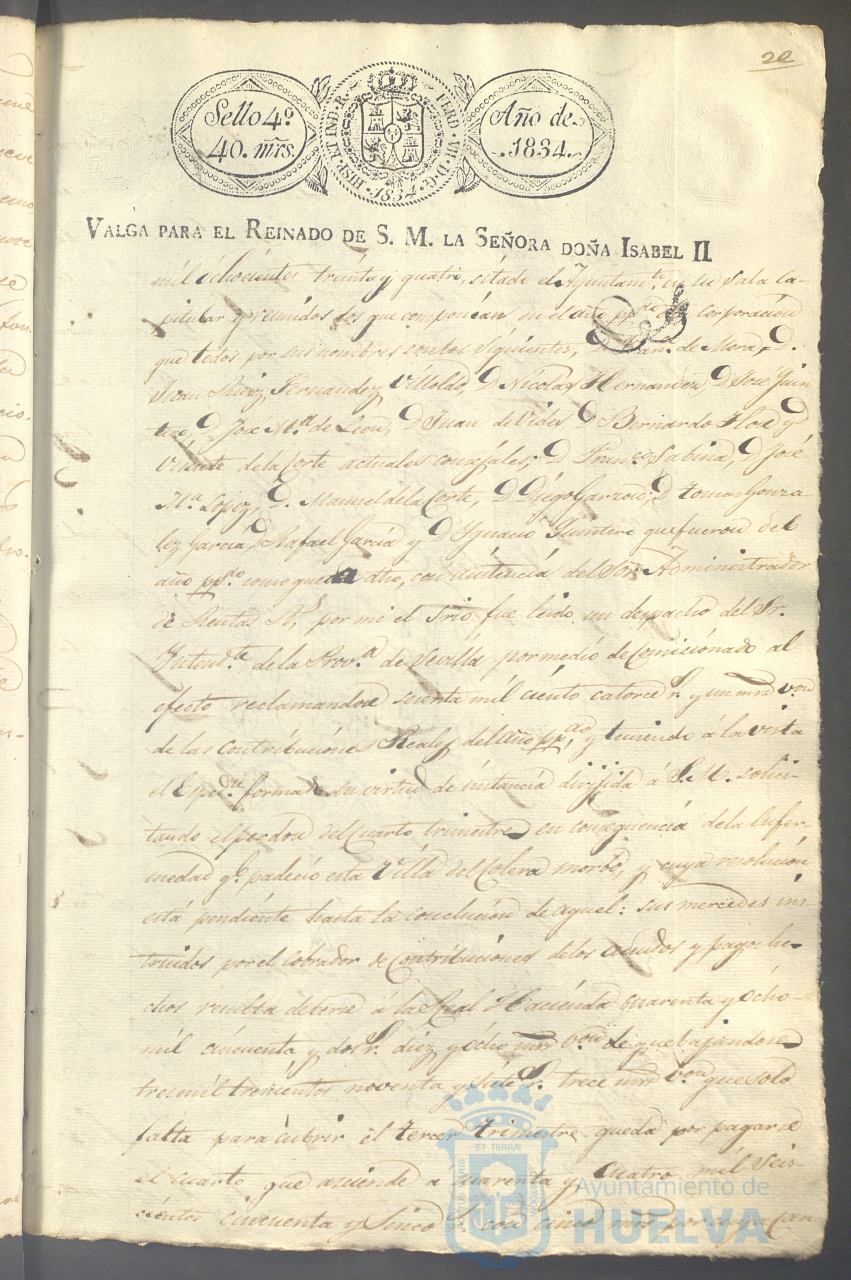 20
Sello 4º
40. mrs.
HISP. ET IND. R. FERD. VII. D. G.
1834
Año de
1834.
VALGA PARA EL REINADO DE S. M. LA SEÑORA DOÑA ISABEL II
mil ochocientos treinta y quatro, sitado el Ayuntamto. en su Sala Ca-
pitular y reunidos los que componian en el año pp.do corporacion
que todos por sus nombres son los siguientes, D. Fran. de Mora, D.
Fernandez Villoldo, D Nicolas Hernandez, D José Quin
tero, D. José Mª. de Leon, D Juan de Vides, D Bernardo Flor y D
Vicente de la Corte actuales concejales; D Franco. Sabina, D José
Mª. Lopez, D. Manuel de la Corte, D Diego Garzon, D Tomas Gonza-
lez Garcia, D Rafael Garcia y D Ygnacio Quintero que fueron del
año pp.do como queda dho, con asistencia del Sor. Administrador
de Rentas Rs, por mi el Srio, fue leido un despacho del Sr.
Yntend.te de la Prov.a de Sevilla por medio de Comicionado al
efecto reclamandose sesenta mil ciento catorce r.s y un mrs von
de las contribuciones Reales del Año pp.do, y teniendo á la vista
el Esped.te formado en virtud de instancia dirijida á S. M. solici-
tando el perdon del cuarto trimestre en consequencia de la Enfer-
medad q.e padeció esta Villa del Colera morbo, y cuya resolucion
está pendiente hasta la conclucion de aquel: sus mercedes ins-
truidos por el Cobrador de Contribuciones de los adeudos y pagos he-
chos resulta deberse á la Real Hacienda quarenta y ocho
mil cincuenta y dos r.s diez y ocho mrs von de que bajandose
tres mil trescientos noventa y siete r.s trece mrs von que solo
falta para cubrir el tercer trimestre queda por pagarse
el cuarto que asciende á quarenta y cuatro mil Seis-
cientos cincuenta y Sinco r.s con cinco mrs por cuya can
ET TERRAE
Ayuntamiento de
HUELVA